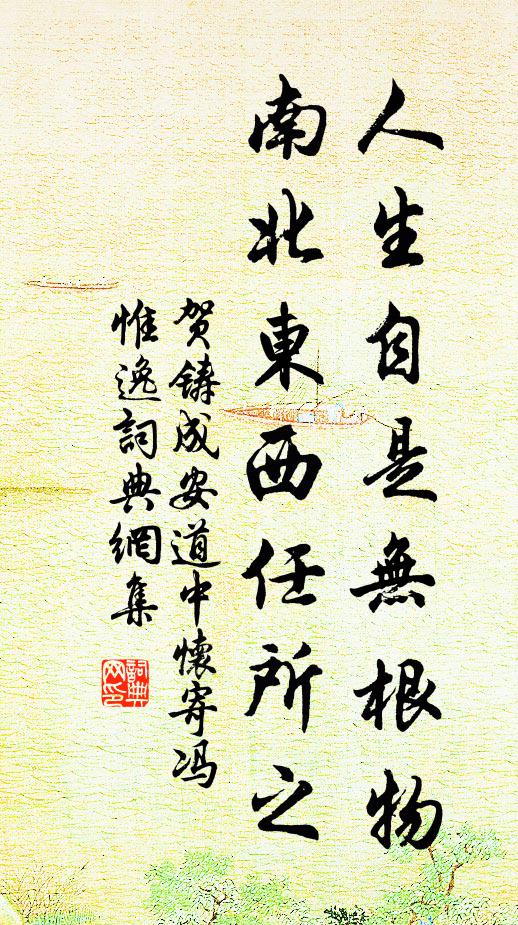 人生自是無根物
南北東西任所之
贺鑄成安道中懷寄冯
惟逸詞典網集
詞典
网印